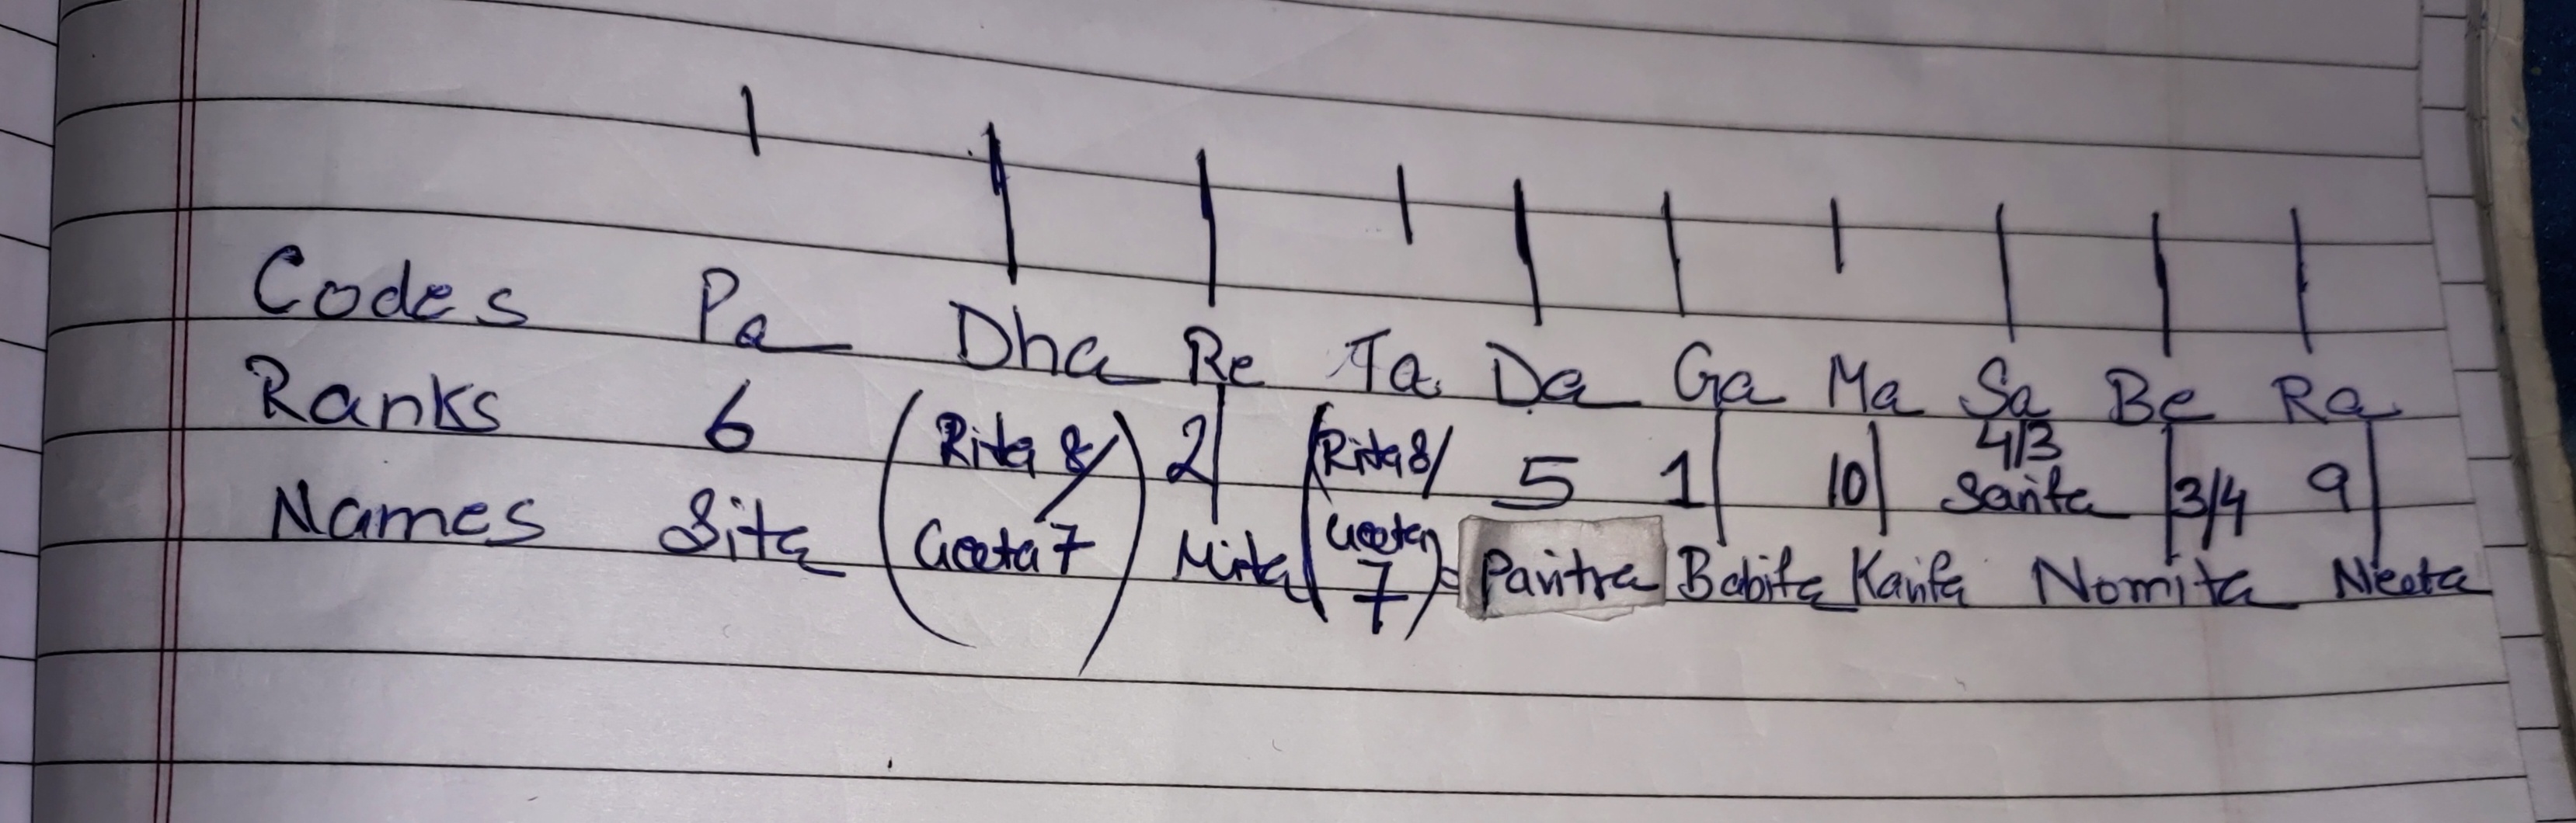 Codes Pa Dha Re Ta Da Ga Ma Sa Be Ra
Ranks 6 (Rita 8/ 2 (Rita 8/ 5 1 10 4/3 3/4 9
Names Sita Geeta 7) Mita Geeta 7) Pavitra Babita Kavita Sarita Nomita Neeta